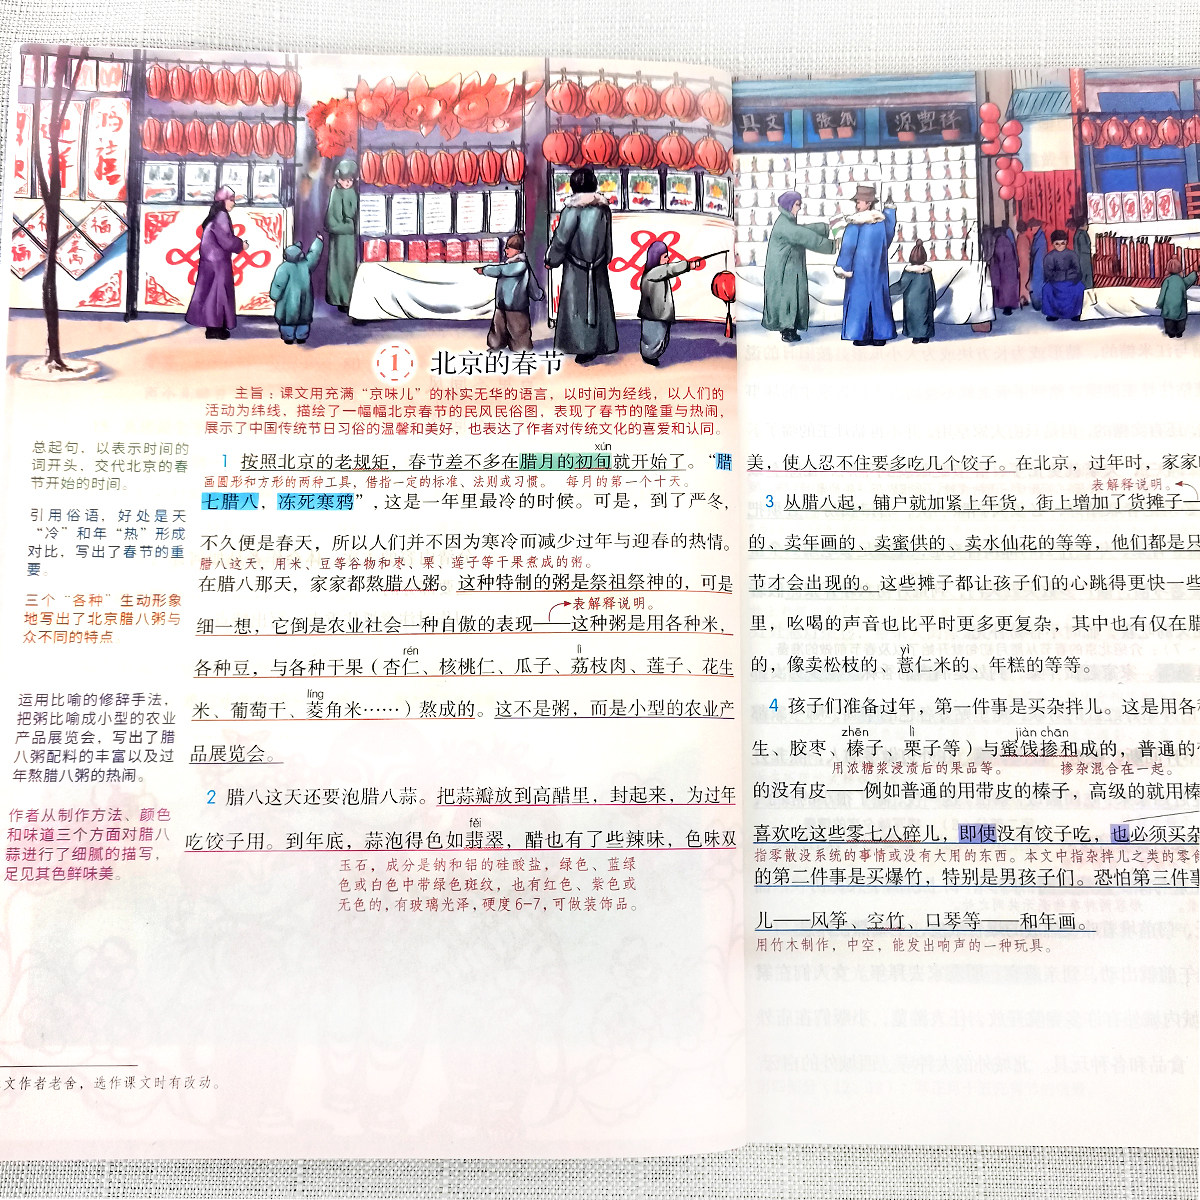 文具
纸张
源豐祥
迎
祥
福
福
萬
1 北京的春节
主旨:课文用充满“京味儿”的朴实无华的语言,以时间为经线,以人们的
活动为纬线,描绘了一幅幅北京春节的民风民俗图,表现了春节的隆重与热闹,
展示了中国传统节日习俗的温馨和美好,也表达了作者对传统文化的喜爱和认同。
总起句,以表示时间的
词开头,交代北京的春
节开始的时间。
引用俗语,好处是天
“冷”和年“热”形成
对比,写出了春节的重
要。
三个“各种”生动形象
地写出了北京腊八粥与
众不同的特点
运用比喻的修辞手法,
把粥比喻成小型的农业
产品展览会,写出了腊
八粥配料的丰富以及过
年熬腊八粥的热闹。
作者从制作方法、颜色
和味道三个方面对腊八
蒜进行了细腻的描写,
足见其色鲜味美。
xún
1 按照北京的老规矩,春节差不多在腊月的初旬就开始了。“腊
画圆形和方形的两种工具,借指一定的标准、法则或习惯。 每月的第一个十天。
七腊八,冻死寒鸦”,这是一年里最冷的时候。可是,到了严冬,
不久便是春天,所以人们并不因为寒冷而减少过年与迎春的热情。
腊八这天,用米、豆等谷物和枣、栗、莲子等干果煮成的粥。
在腊八那天,家家都熬腊八粥。这种特制的粥是祭祖祭神的,可是
表解释说明。
细一想,它倒是农业社会一种自傲的表现——这种粥是用各种米,
rén lì
各种豆,与各种干果(杏仁、核桃仁、瓜子、荔枝肉、莲子、花生
líng
米、葡萄干、菱角米……)熬成的。这不是粥,而是小型的农业产
品展览会。
2 腊八这天还要泡腊八蒜。把蒜瓣放到高醋里,封起来,为过年
fěi
吃饺子用。到年底,蒜泡得色如翡翠,醋也有了些辣味,色味双
玉石,成分是钠和铝的硅酸盐,绿色、蓝绿
色或白色中带绿色斑纹,也有红色、紫色或
无色的,有玻璃光泽,硬度6-7,可做装饰品。
文作者老舍,选作课文时有改动。
美,使人忍不住要多吃几个饺子。在北京,过年时,家家
表解释说明。
3 从腊八起,铺户就加紧上年货,街上增加了货摊子—
的、卖年画的、卖蜜供的、卖水仙花的等等,他们都是只
节才会出现的。这些摊子都让孩子们的心跳得更快一些
里,吆喝的声音也比平时更多更复杂,其中也有仅在腊
yì
的,像卖松枝的、薏仁米的、年糕的等等。
4 孩子们准备过年,第一件事是买杂拌儿。这是用各种
zhēn lì jiàn chān
生、胶枣、榛子、栗子等)与蜜饯掺和成的,普通的
用浓糖浆浸渍后的果品等。 掺杂混合在一起。
的没有皮——例如普通的用带皮的榛子,高级的就用榛
喜欢吃这些零七八碎儿,即使没有饺子吃,也必须买杂
指零散没系统的事情或没有大用的东西。本文中指杂拌儿之类的零食
的第二件事是买爆竹,特别是男孩子们。恐怕第三件事
儿——风筝、空竹、口琴等——和年画。
用竹木制作,中空,能发出响声的一种玩具。